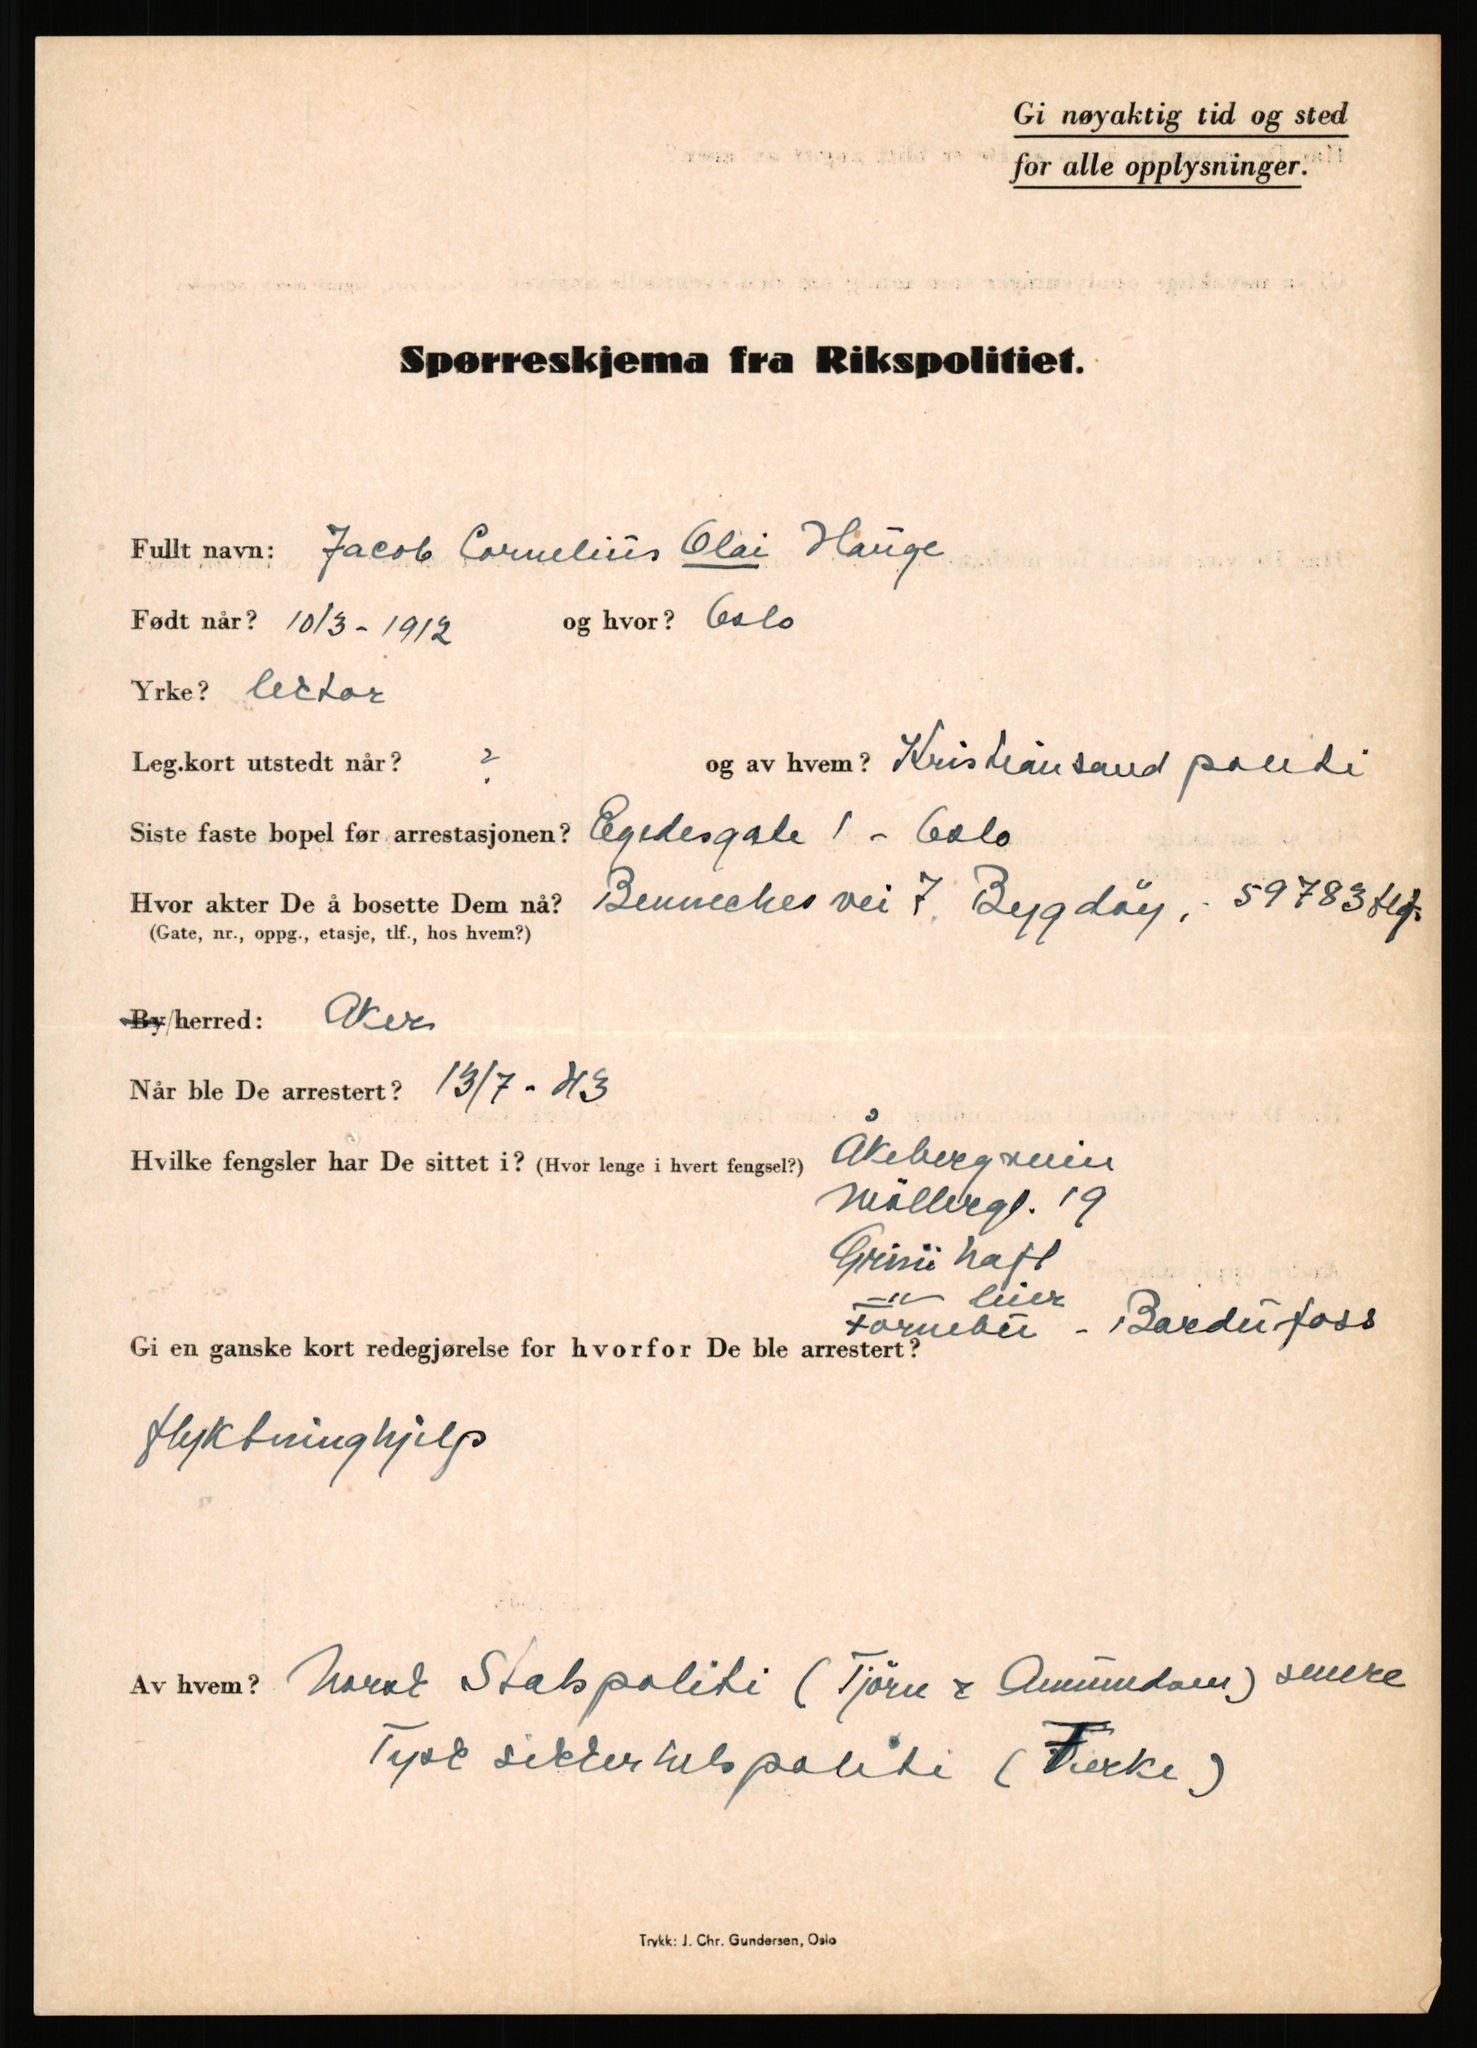 Gi nøyaktig tid og sted
for alle opplysninger.
Spørreskjema fra Rikspolitiet.
Fullt navn: Jacob Cornelius Olai Hauge
Født når? 10/3 - 1912 og hvor? Oslo
Yrke? lektor
Leg.kort utstedt når? ? og av hvem? Kristiansand politi
Siste faste bopel før arrestasjonen? Egedesgate 1 - Oslo
Hvor akter De å bosette Dem nå? Benneches vei 7, Bygdöy, 59783 tlf.
(Gate, nr., oppg., etasje, tlf., hos hvem?)
By/herred: Aker
Når ble De arrestert? 13/7 - 43
Hvilke fengsler har De sittet i? (Hvor lenge i hvert fengsel?) Åkebergveien
Möllergt. 19
Grini haft
—"— leir
Fornebu - Bardufoss
Gi en ganske kort redegjørelse for hvorfor De ble arrestert?
flyktninghjelp
Av hvem? Norsk Statspoliti (Tjörn & Amundsen) senere
Tysk sikkerhetspoliti ( )
Trykk: J. Chr. Gundersen, Oslo